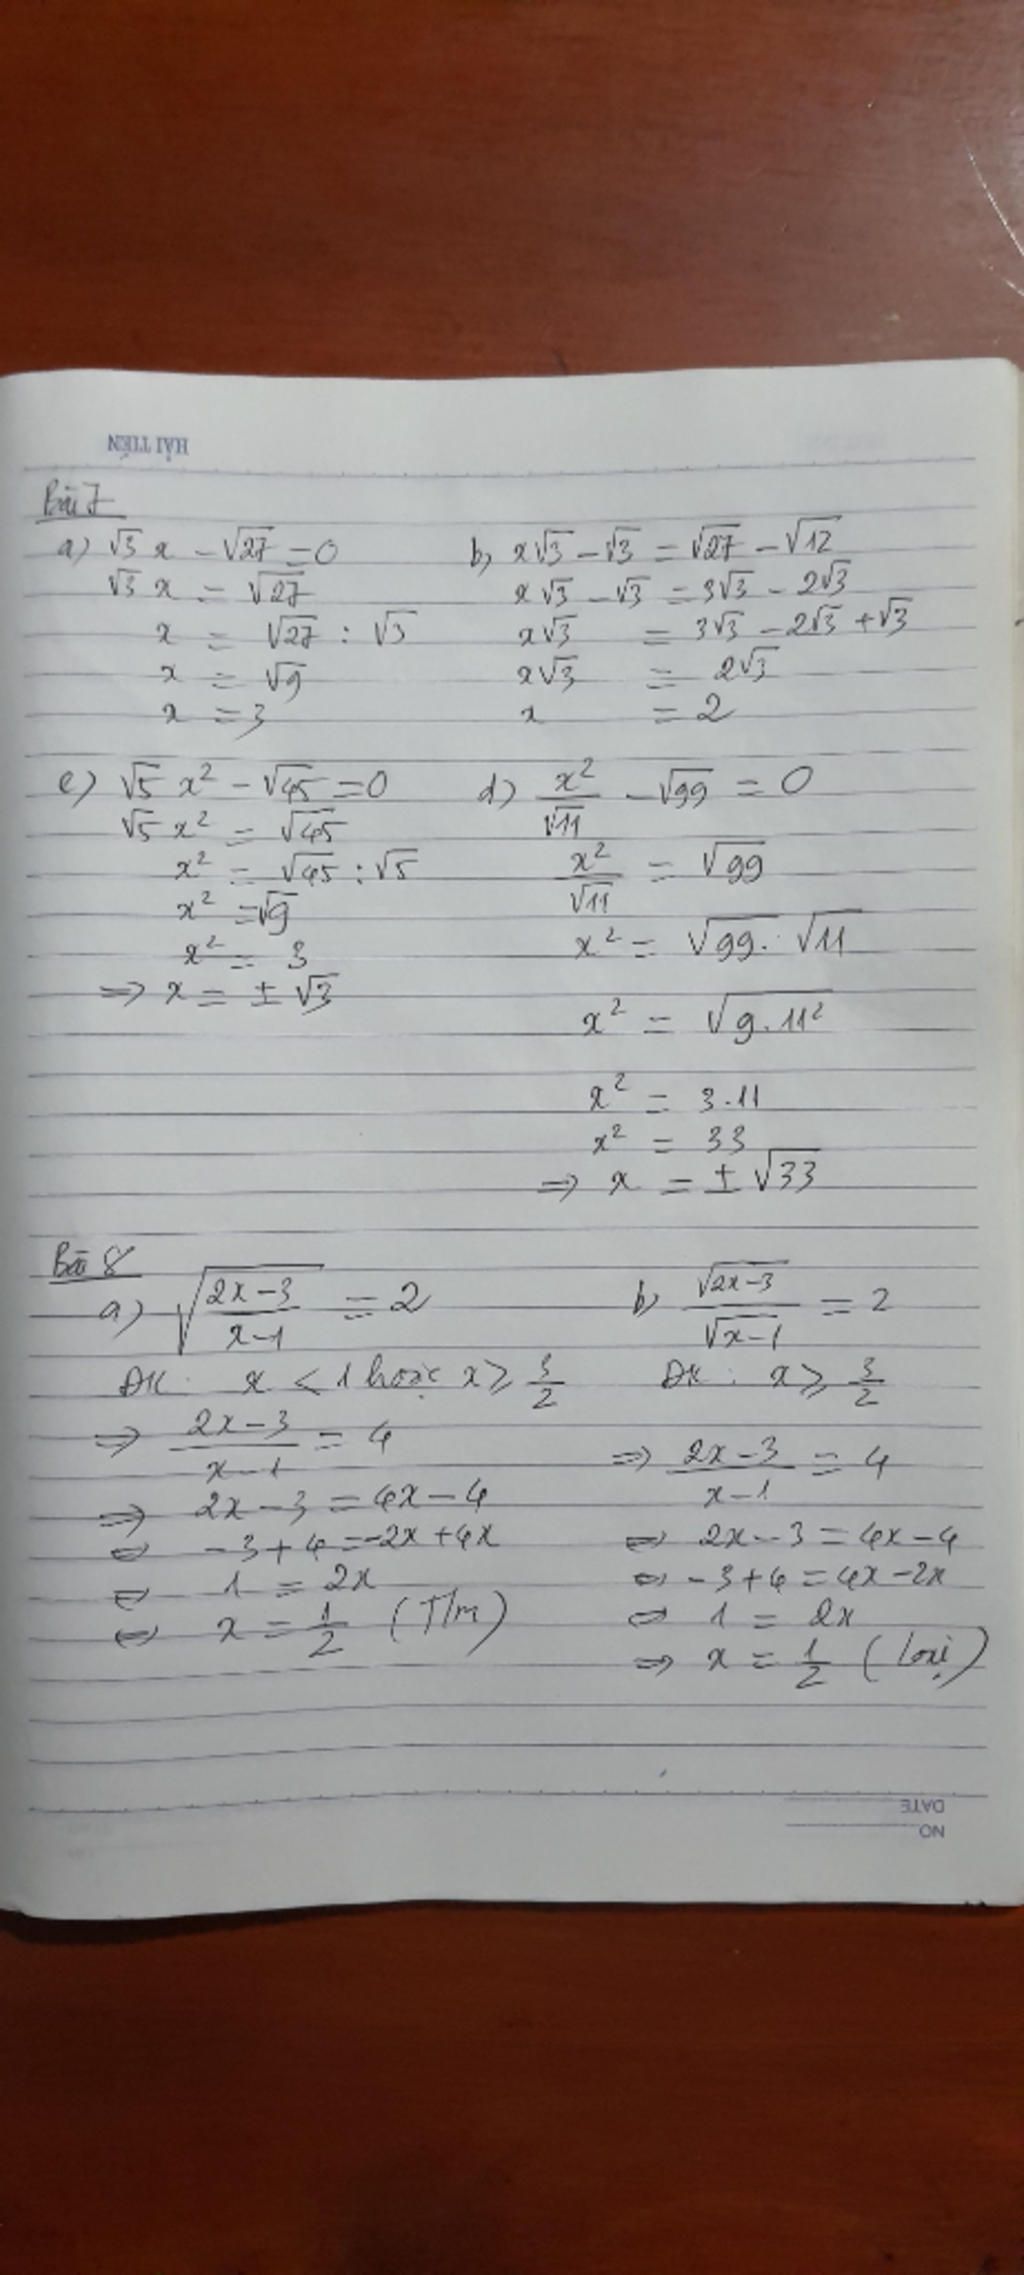 HẢI TIẾN
Bài 7
a) √3 x - √27 = 0
√3 x = √27
x = √27 : √3
x = √9
x = 3
b) x√3 - √3 = √27 - √12
x√3 - √3 = 3√3 - 2√3
x√3 = 3√3 - 2√3 + √3
x√3 = 2√3
x = 2
c) √5 x² - √45 = 0
√5 x² = √45
x² = √45 : √5
x² = √9
x² = 3
=> x = ± √3
d) x²/√11 - √99 = 0
x²/√11 = √99
x² = √99 . √11
x² = √(9.11²)
x² = 3.11
x² = 33
=> x = ± √33
Bài 8
a) √((2x-3)/(x-1)) = 2
ĐK: x < 1 hoặc x ≥ 3/2
=> (2x-3)/(x-1) = 4
=> 2x - 3 = 4x - 4
<=> -3 + 4 = -2x + 4x
<=> 1 = 2x
<=> x = 1/2 (T/m)
b) √(2x-3)/√(x-1) = 2
ĐK: x ≥ 3/2
=> (2x-3)/(x-1) = 4
<=> 2x - 3 = 4x - 4
<=> -3 + 4 = 4x - 2x
<=> 1 = 2x
=> x = 1/2 (Loại)
DATE
NO